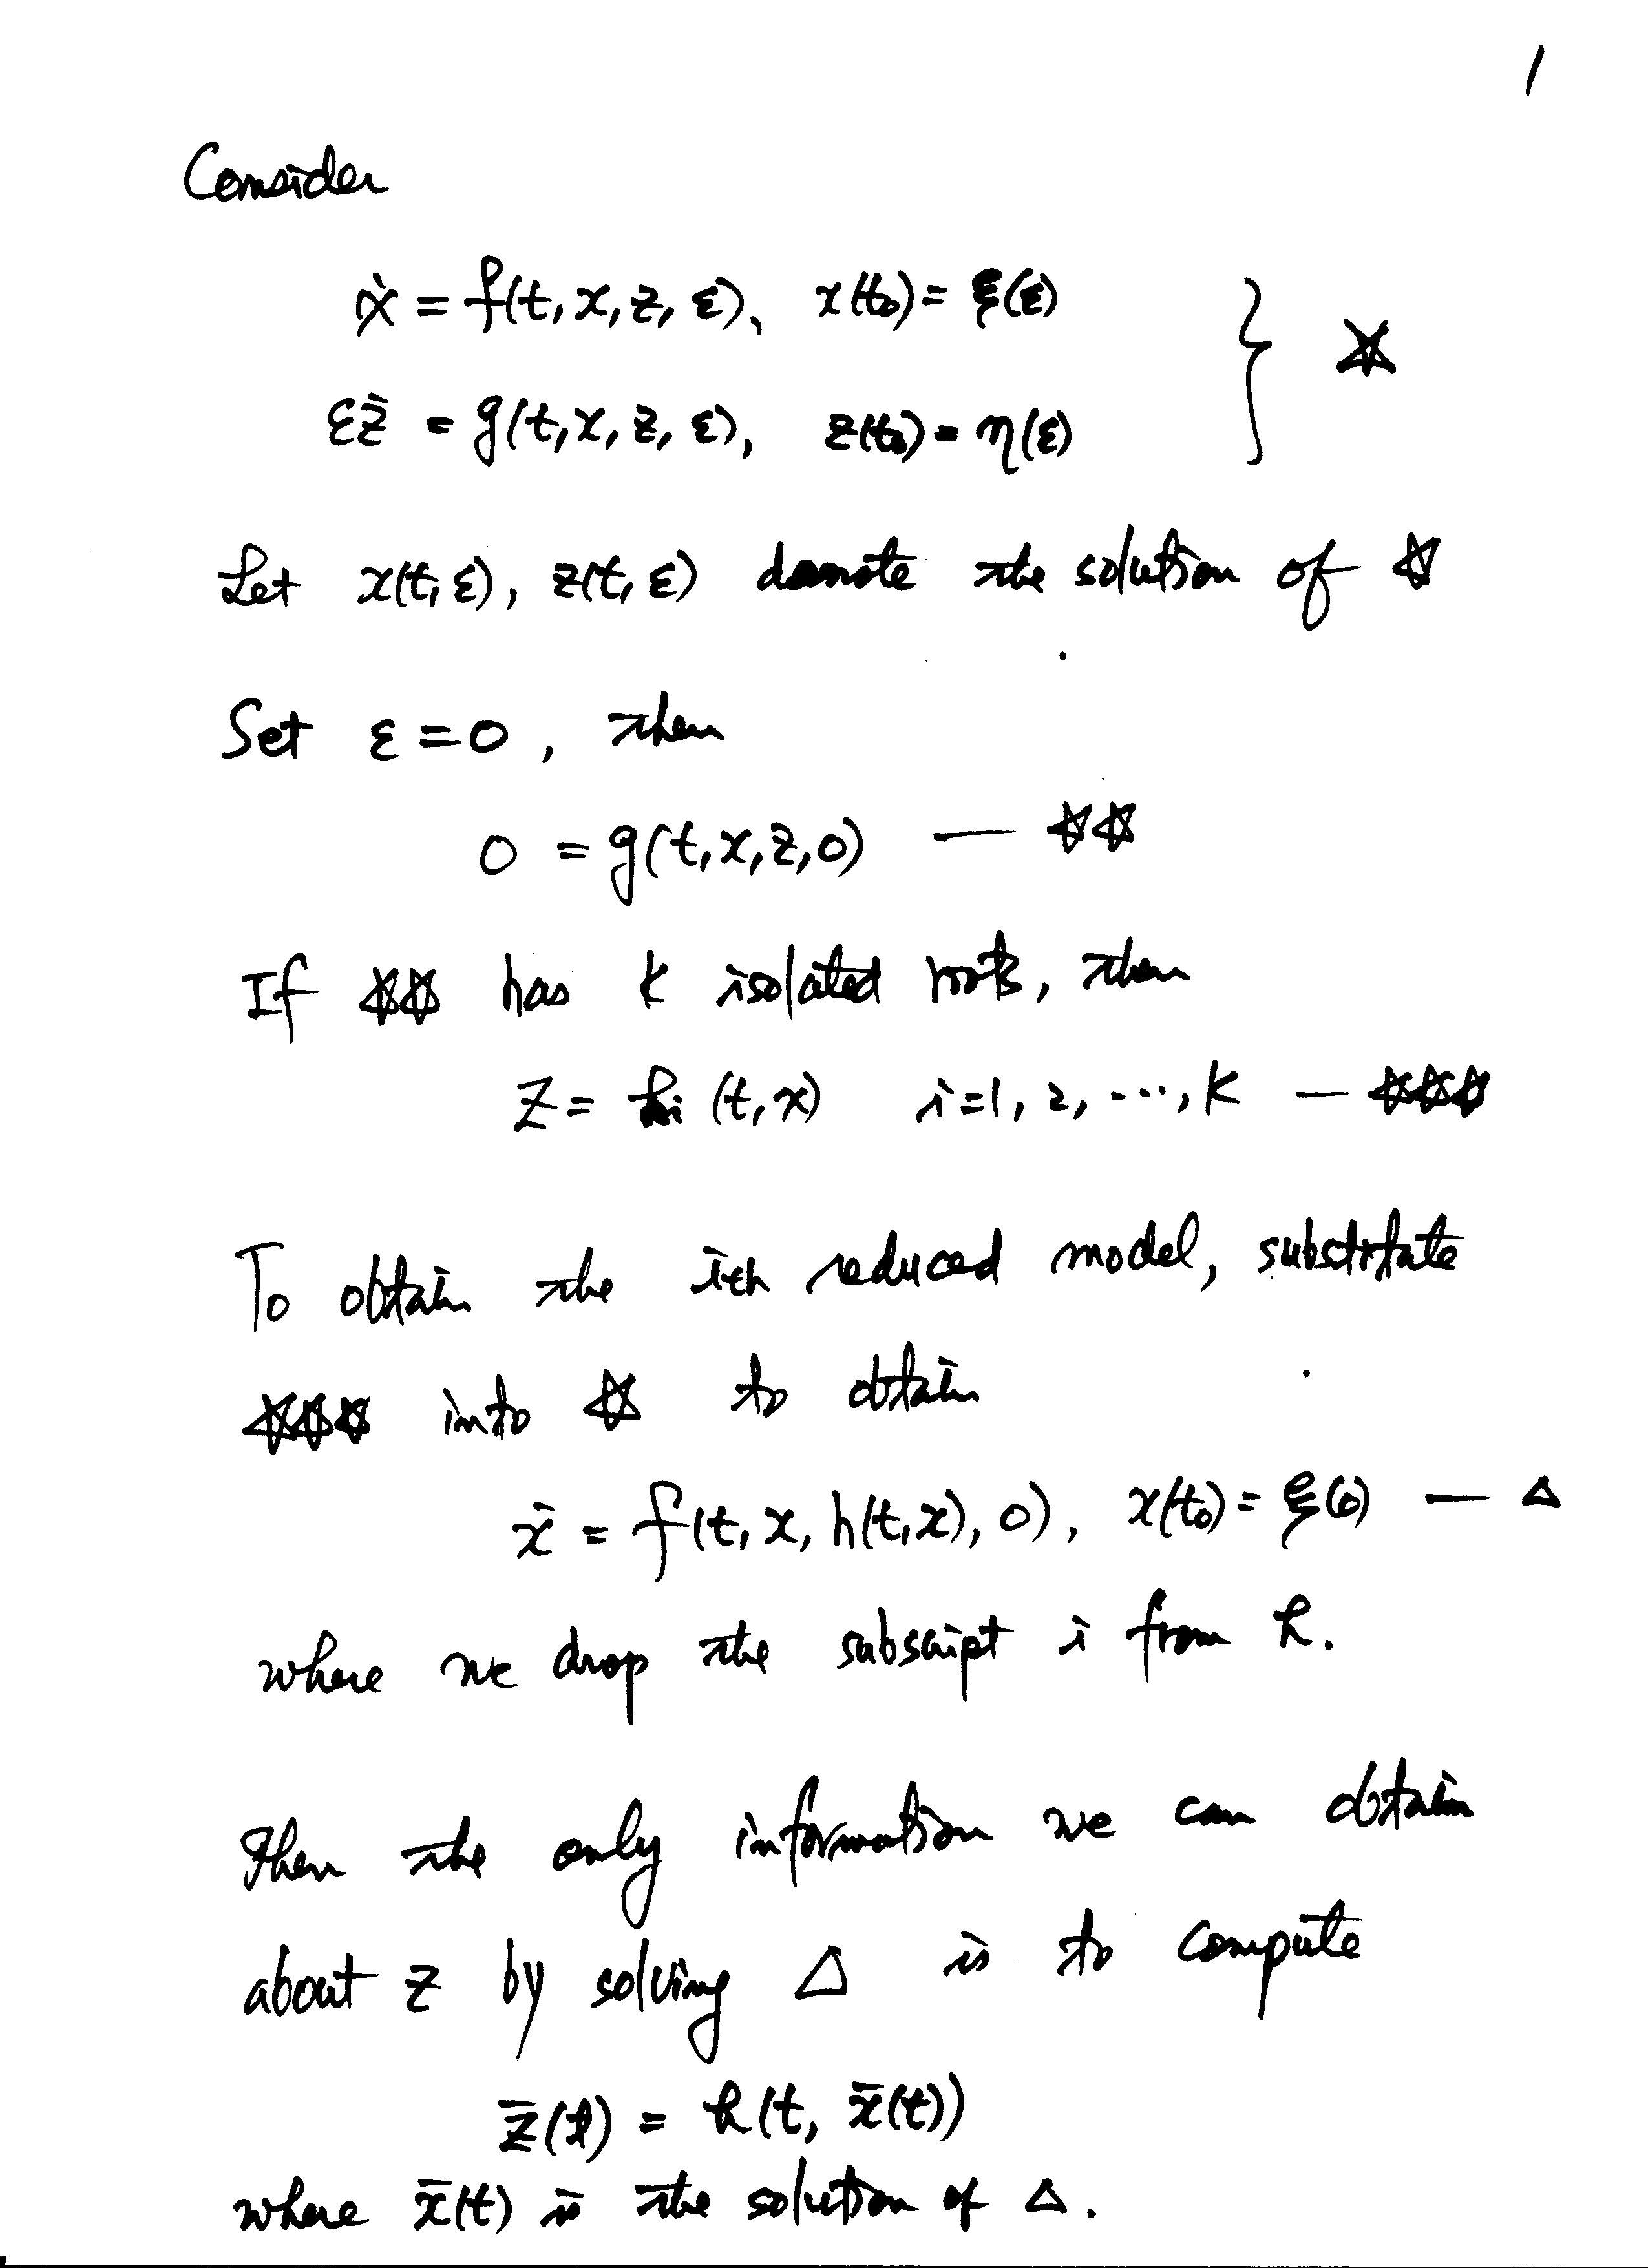 1
Consider
ẋ = f(t, x, z, ε), x(t₀) = ξ(ε)
εż = g(t, x, z, ε), z(t₀) = η(ε) } ☆
Let x(t, ε), z(t, ε) denote the solution of ☆
Set ε = 0, then
0 = g(t, x, z, 0) — ☆☆
If ☆☆ has k isolated roots, then
z = hᵢ(t, x) i = 1, 2, ..., k — ☆☆☆
To obtain the ith reduced model, substitute
☆☆☆ into ☆ to obtain
ẋ = f(t, x, h(t, x), 0), x(t₀) = ξ(0) — △
where we drop the subscript i from h.
Then the only information we can obtain
about z by solving △ is to compute
z̄(t) = h(t, x̄(t))
where x̄(t) is the solution of △.